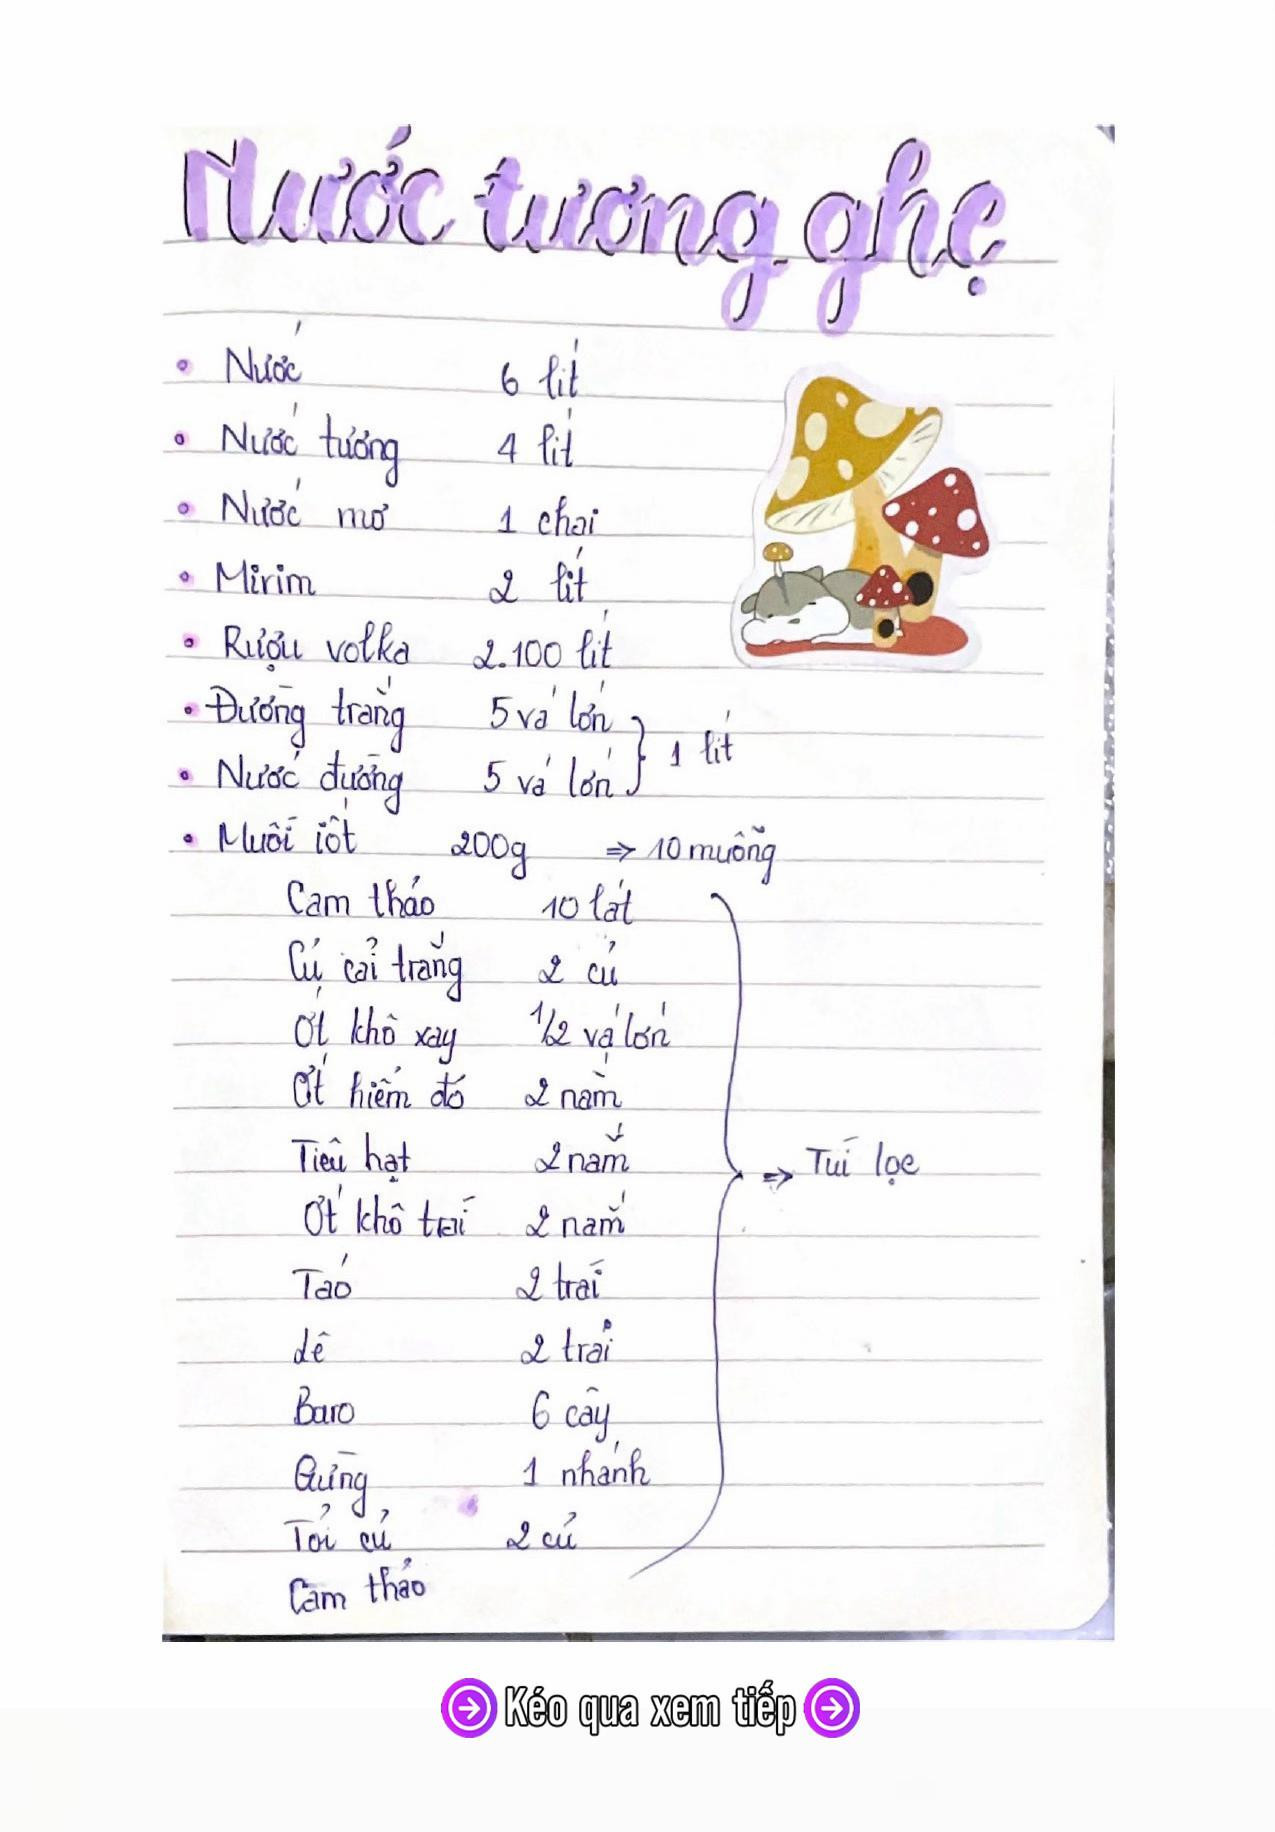 Nước tương ghẹ
• Nước 6 lít
• Nước tương 4 lít
• Nước mơ 1 chai
• Mirim 2 lít
• Rượu votka 2.100 lít
• Đường trắng 5 vá lớn
} 1 lít
• Nước đường 5 vá lớn
• Muối iốt 200g => 10 muỗng
Cam thảo 10 lát
Củ cải trắng 2 củ
Ớt khô xay 1/2 vá lớn
Ớt hiểm đỏ 2 nắm
Tiêu hạt 2 nắm
=> Túi lọc
Ớt khô trái 2 nắm
Táo 2 trái
Lê 2 trái
Baro 6 cây
Gừng 1 nhánh
Tỏi củ 2 củ
Cam thảo
Kéo qua xem tiếp